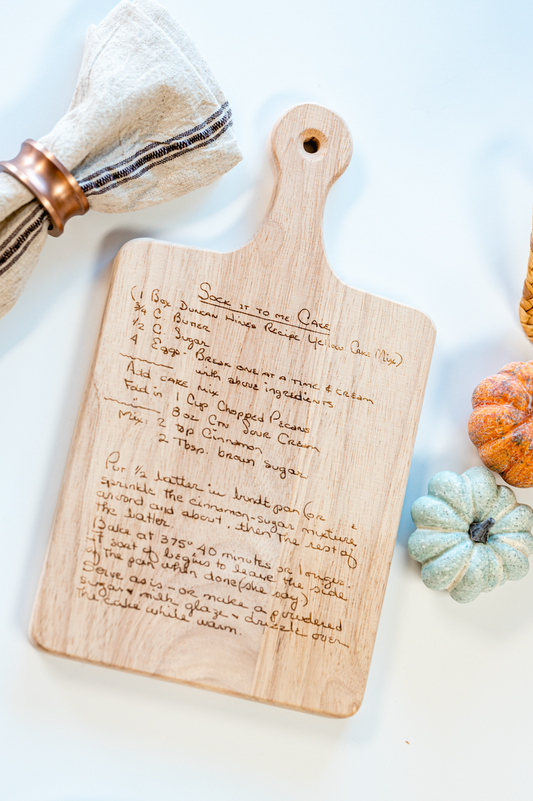 Sock it to me Cake
(1 Box Duncan Hines Recipe Yellow Cake Mix)
3/4 C. Butter
1/2 C. Sugar
4 Eggs. Break one at a time & cream
with above ingredients
Add cake mix
Fold in 1 Cup Chopped Pecans
8 oz Ctn Sour Cream
Mix: 2 tsp Cinnamon
2 Tbsp. brown sugar
Put 1/2 batter in bundt pan (or
sprinkle the cinnamon-sugar mixture
around and about. then the rest of
the batter.
Bake at 375° 40 minutes or longer.
It sort of begins to leave the side
of the pan when done (she say)
Serve as is or make a powdered
sugar & milk glaze & drizzle over
the cake while warm.